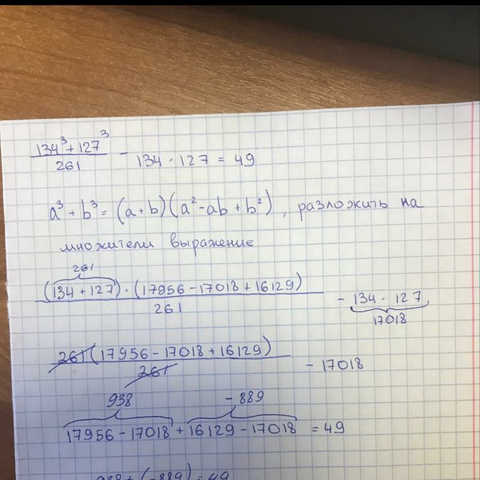 134³ + 127³ / 261 - 134 · 127 = 49
a³ + b³ = (a+b)(a² - ab + b²), разложить на
множители выражение
261
(134 + 127) · (17956 - 17018 + 16129) / 261 - 134 · 127
17018
261 (17956 - 17018 + 16129) / 261 - 17018
938 - 889
17956 - 17018 + 16129 - 17018 = 49
938 + (-889) = 49